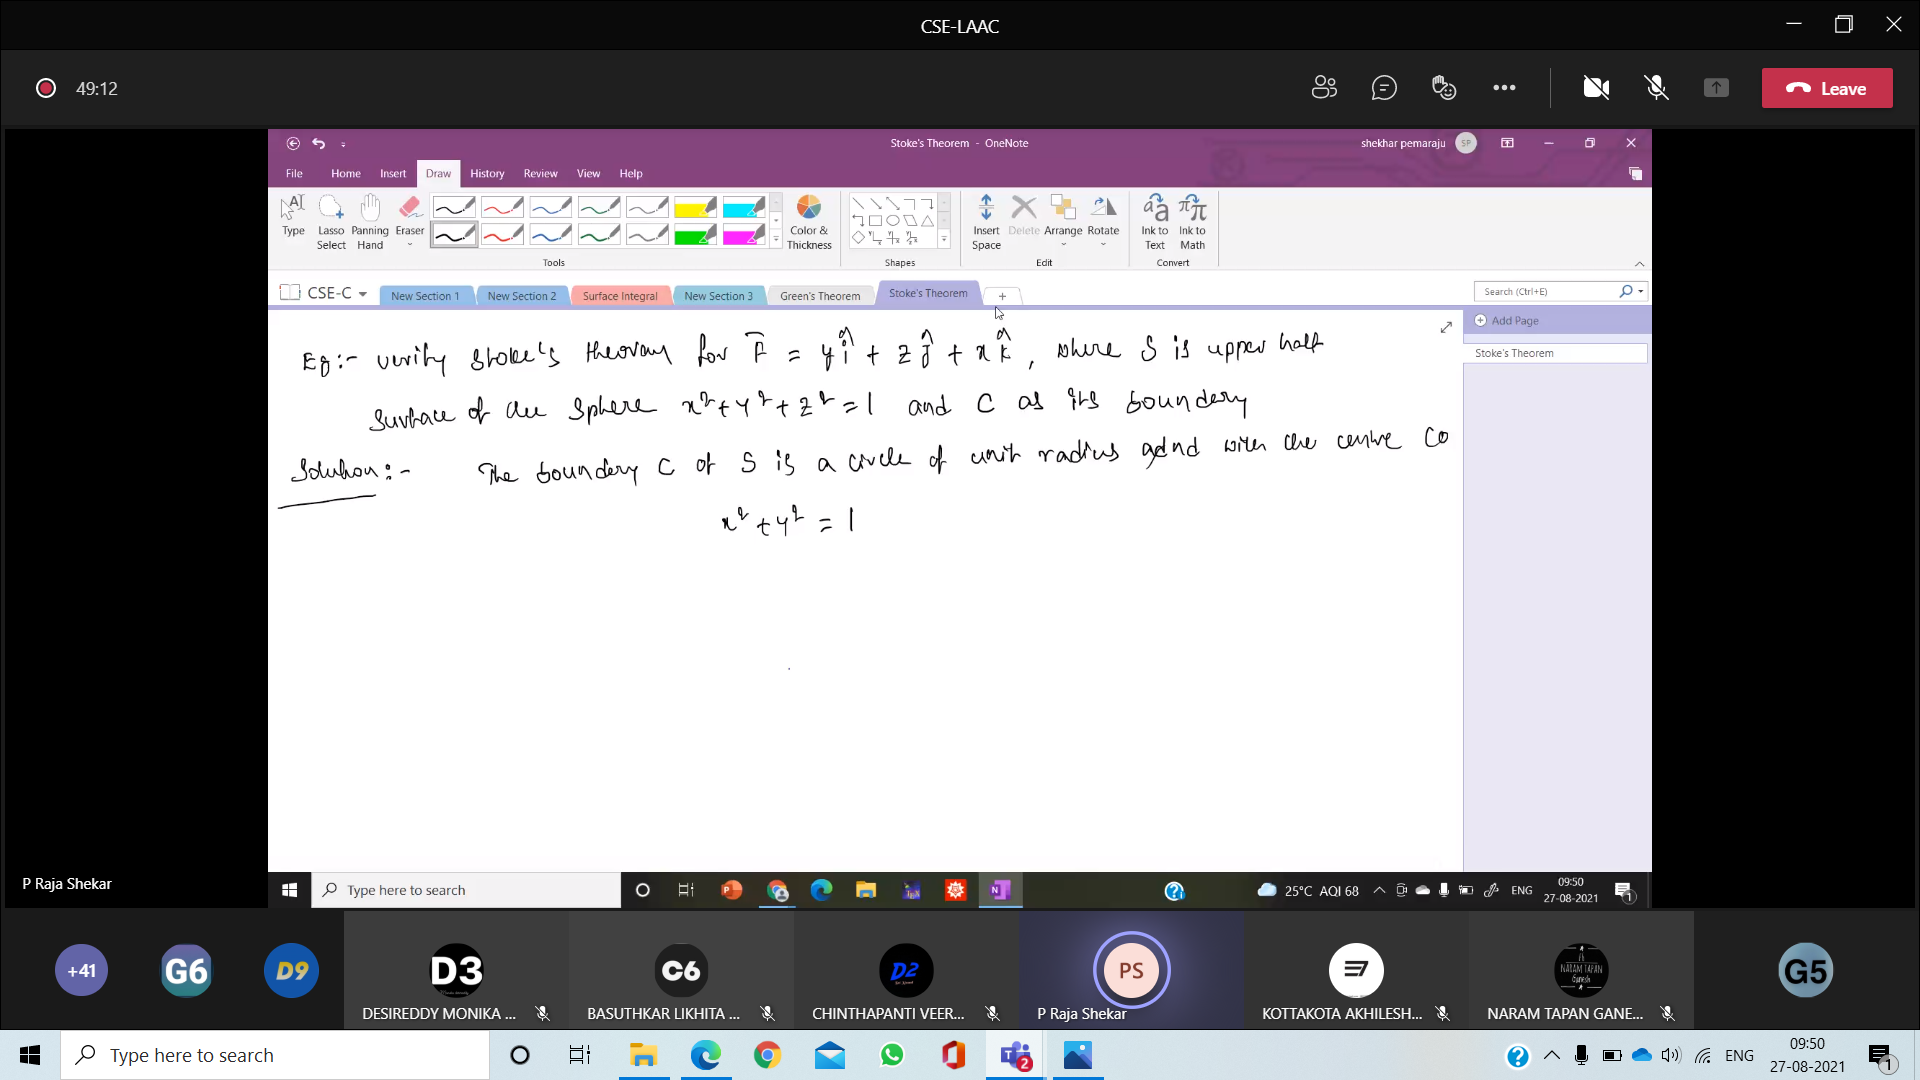 CSE-LAAC
49:12
Leave
Stoke's Theorem - OneNote
shekhar pemaraju SP
File Home Insert Draw History Review View Help
Type Lasso Select Panning Hand Eraser Color & Thickness Insert Space Delete Arrange Rotate Ink to Text Ink to Math
Tools Shapes Edit Convert
CSE-C New Section 1 New Section 2 Surface Integral New Section 3 Green's Theorem Stoke's Theorem + Search (Ctrl+E)
Add Page
Stoke's Theorem
Eg:- verify Stoke's theorem for F̄ = y î + z ĵ + x k̂, where S is upper half
Surface of the Sphere x² + y² + z² = 1 and C as its boundery
Solution:- The boundery C of S is a circle of unit radius and with the centre (0
x² + y² = 1
P Raja Shekar
Type here to search 25°C AQI 68 ENG 09:50 27-08-2021 1
+41 G6 D9 D3 C6 D2 PS NARAM TAPAN Ganesh G5
DESIREDDY MONIKA ... BASUTHKAR LIKHITA ... CHINTHAPANTI VEER... P Raja Shekar KOTTAKOTA AKHILESH... NARAM TAPAN GANE...
Type here to search 2 ENG 09:50 27-08-2021 1